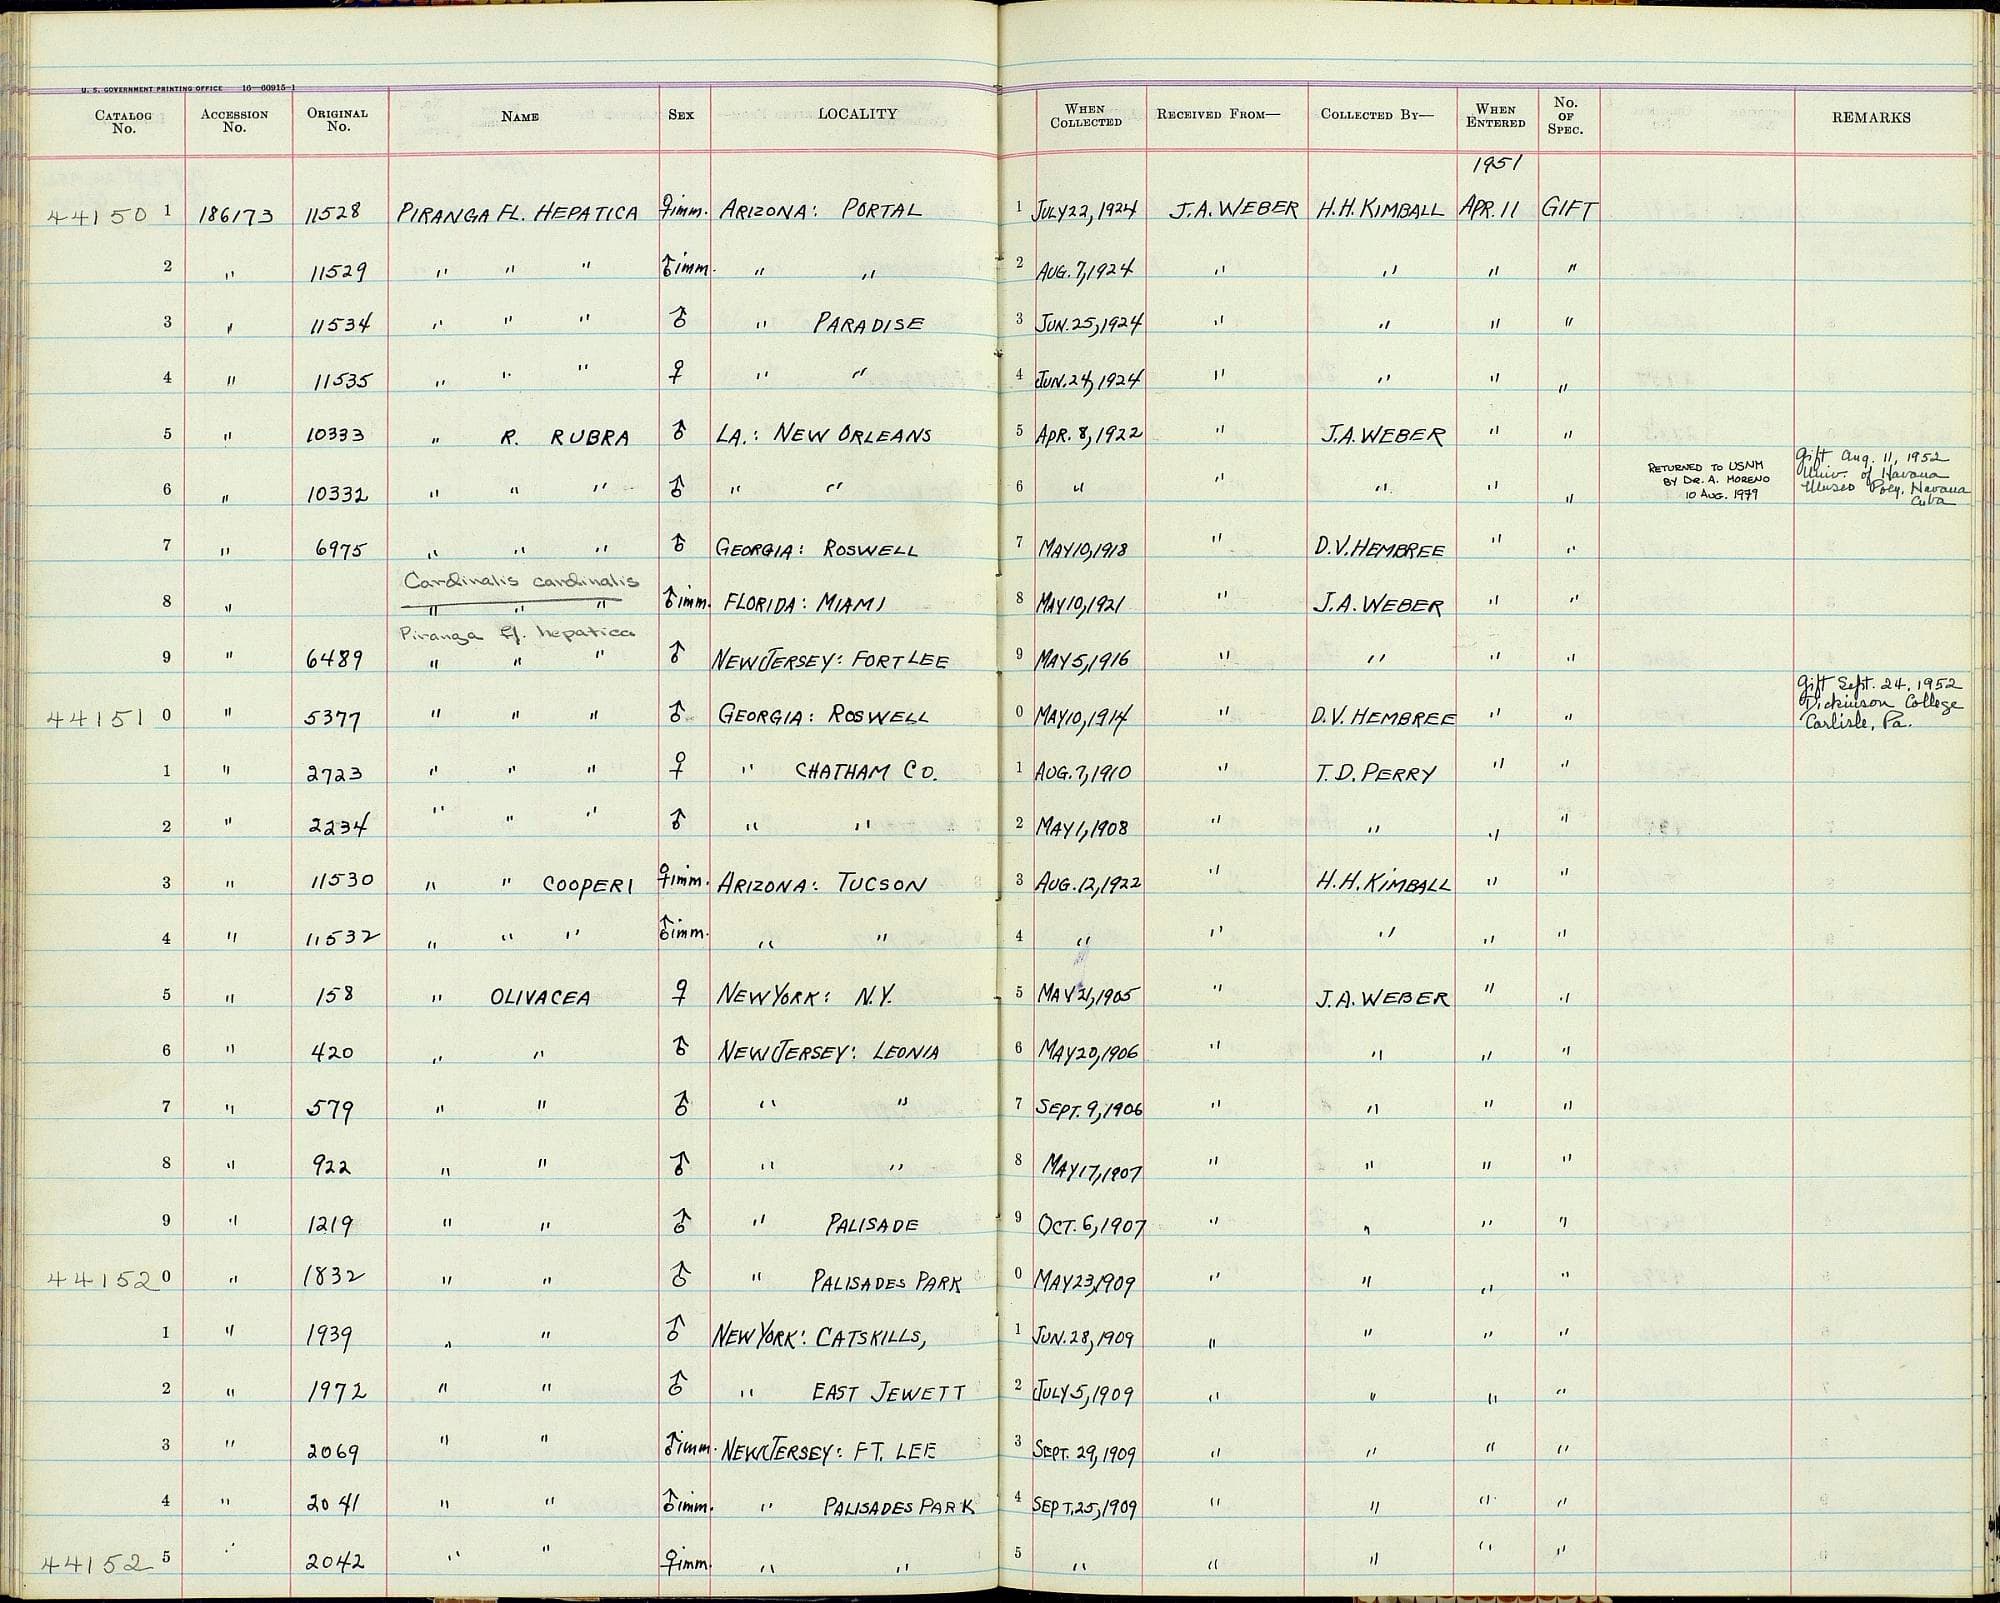 U. S. GOVERNMENT PRINTING OFFICE 16—60915-1
CATALOG No. ACCESSION No. ORIGINAL No. NAME SEX LOCALITY WHEN COLLECTED RECEIVED FROM— COLLECTED BY— WHEN ENTERED No. OF SPEC. REMARKS
1951
44150 1 186173 11528 PIRANGA FL. HEPATICA ♀imm. ARIZONA: PORTAL 1 JULY 22, 1924 J.A. WEBER H.H. KIMBALL APR. 11 GIFT
2 " 11529 " " " ♂imm. " " 2 AUG. 7, 1924 " " " "
3 " 11534 " " " ♂ " PARADISE 3 JUN. 25, 1924 " " " "
4 " 11535 " " " ♀ " " 4 JUN. 24, 1924 " " " "
5 " 10333 " R. RUBRA ♂ LA.: NEW ORLEANS 5 APR. 8, 1922 " J.A. WEBER " "
6 " 10332 " " " ♂ " " 6 " " " " " RETURNED TO USNM BY DR. A. MORENO 10 AUG. 1979 Gift Aug. 11, 1952 Univ. of Havana Museo Poey, Havana Cuba
7 " 6975 " " " ♂ GEORGIA: ROSWELL 7 MAY 10, 1918 " D.V. HEMBREE " "
Cardinalis cardinalis
8 " " " " ♂imm. FLORIDA: MIAMI 8 MAY 10, 1921 " J.A. WEBER " "
Piranga fl. hepatica
9 " 6489 " " " ♂ NEW JERSEY: FORT LEE 9 MAY 5, 1916 " " " "
44151 0 " 5377 " " " ♂ GEORGIA: ROSWELL 0 MAY 10, 1914 " D.V. HEMBREE " " Gift Sept. 24, 1952 Dickinson College Carlisle, Pa.
1 " 2723 " " " ♀ " CHATHAM CO. 1 AUG. 7, 1910 " T.D. PERRY " "
2 " 2234 " " " ♂ " " 2 MAY 1, 1908 " " " "
3 " 11530 " " COOPERI ♀imm. ARIZONA: TUCSON 3 AUG. 12, 1922 " H.H. KIMBALL " "
4 " 11532 " " " ♂imm. " " 4 " " " " "
5 " 158 " OLIVACEA ♀ NEW YORK: N.Y. 5 MAY 21, 1905 " J.A. WEBER " "
6 " 420 " " ♂ NEW JERSEY: LEONIA 6 MAY 20, 1906 " " " "
7 " 579 " " ♂ " " 7 SEPT. 9, 1906 " " " "
8 " 922 " " ♂ " " 8 MAY 17, 1907 " " " "
9 " 1219 " " ♂ " PALISADE 9 OCT. 6, 1907 " " " "
44152 0 " 1832 " " ♂ " PALISADES PARK 0 MAY 23, 1909 " " " "
1 " 1939 " " ♂ NEW YORK: CATSKILLS, 1 JUN. 28, 1909 " " " "
2 " 1972 " " ♂ " EAST JEWETT 2 JULY 5, 1909 " " " "
3 " 2069 " " ♂imm. NEW JERSEY: FT. LEE 3 SEPT. 29, 1909 " " " "
4 " 2041 " " ♂imm. " PALISADES PARK 4 SEPT. 25, 1909 " " " "
44152 5 " 2042 " " ♀imm. " " 5 " " " " "